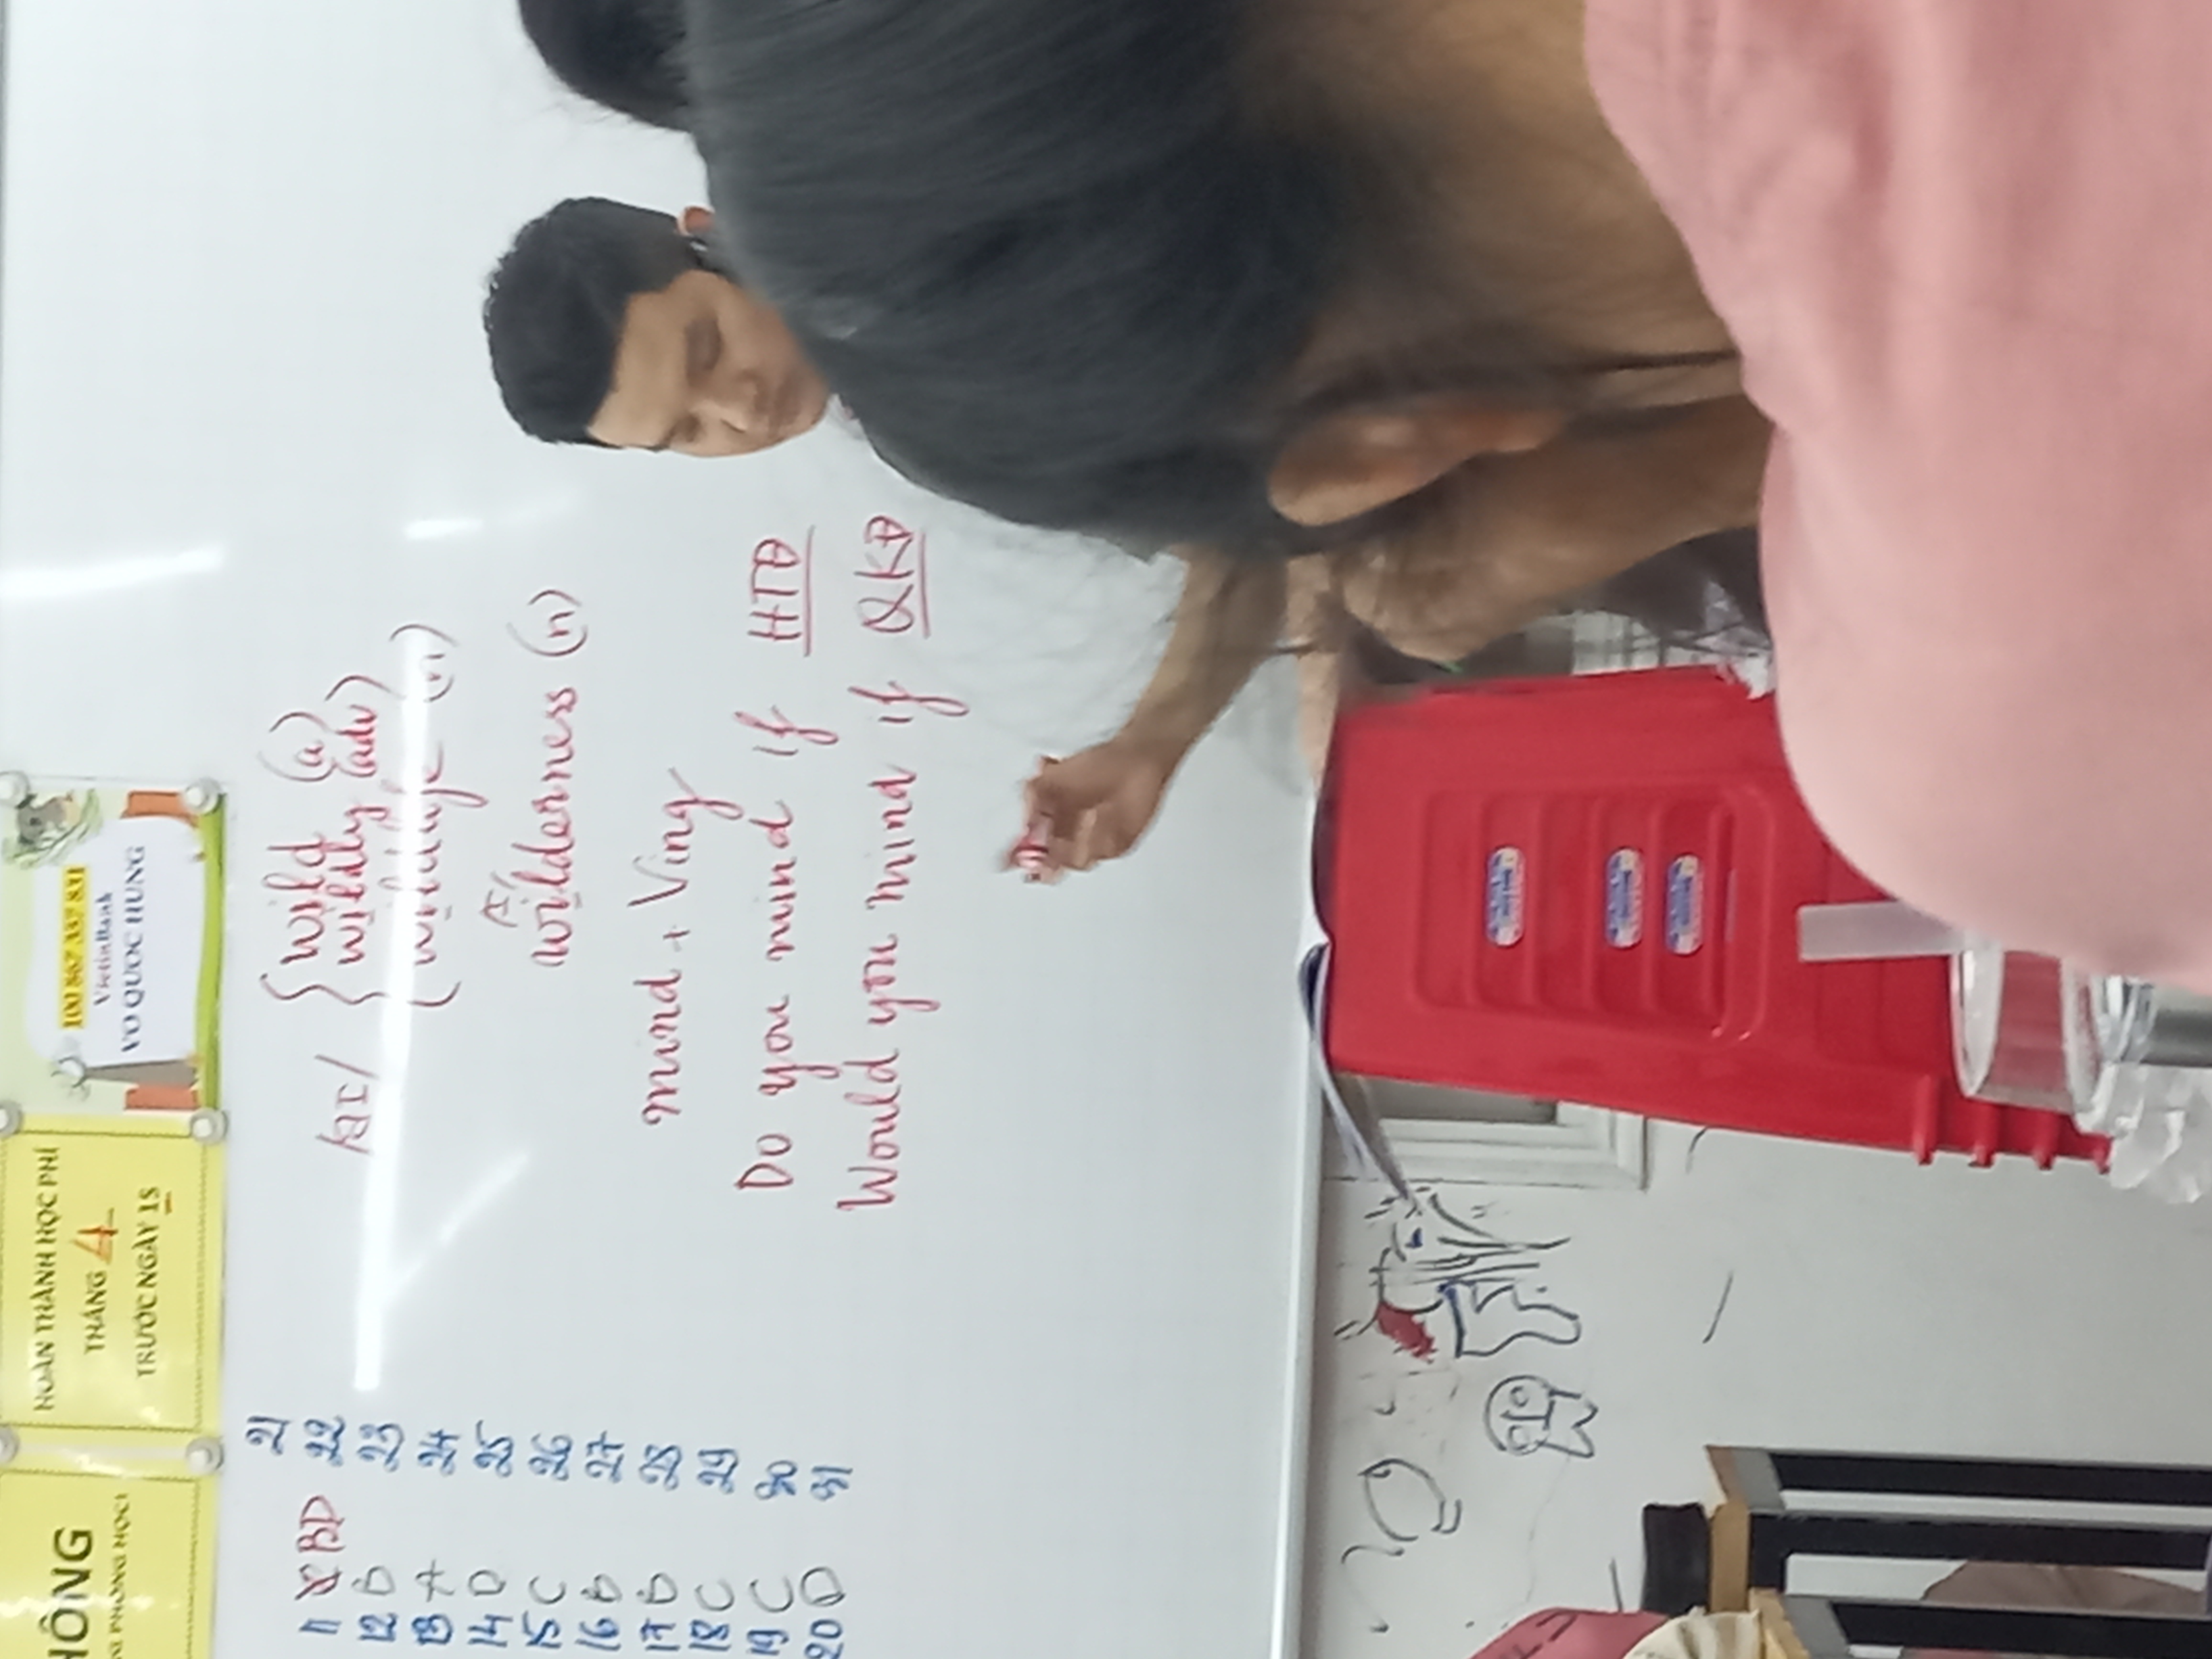 HÔNG
G PHÒNG HỌC!
HOÀN THÀNH HỌC PHÍ
THÁNG 4
TRƯỚC NGÀY 15
100 867 337 831
VietinBank
VO QUOC HUNG
11 BD
12 B
13 A
14 D
15 C
16 B
17 B
18 C
19 C
20 D
21
22
23
24
25
26
27
28
29
30
31
/aɪ/
wild (a)
wildly (adv)
wildlife (n)
/ɪ/
wilderness (n)
mind + Ving
Do you mind if HTĐ
Would you mind if QKĐ